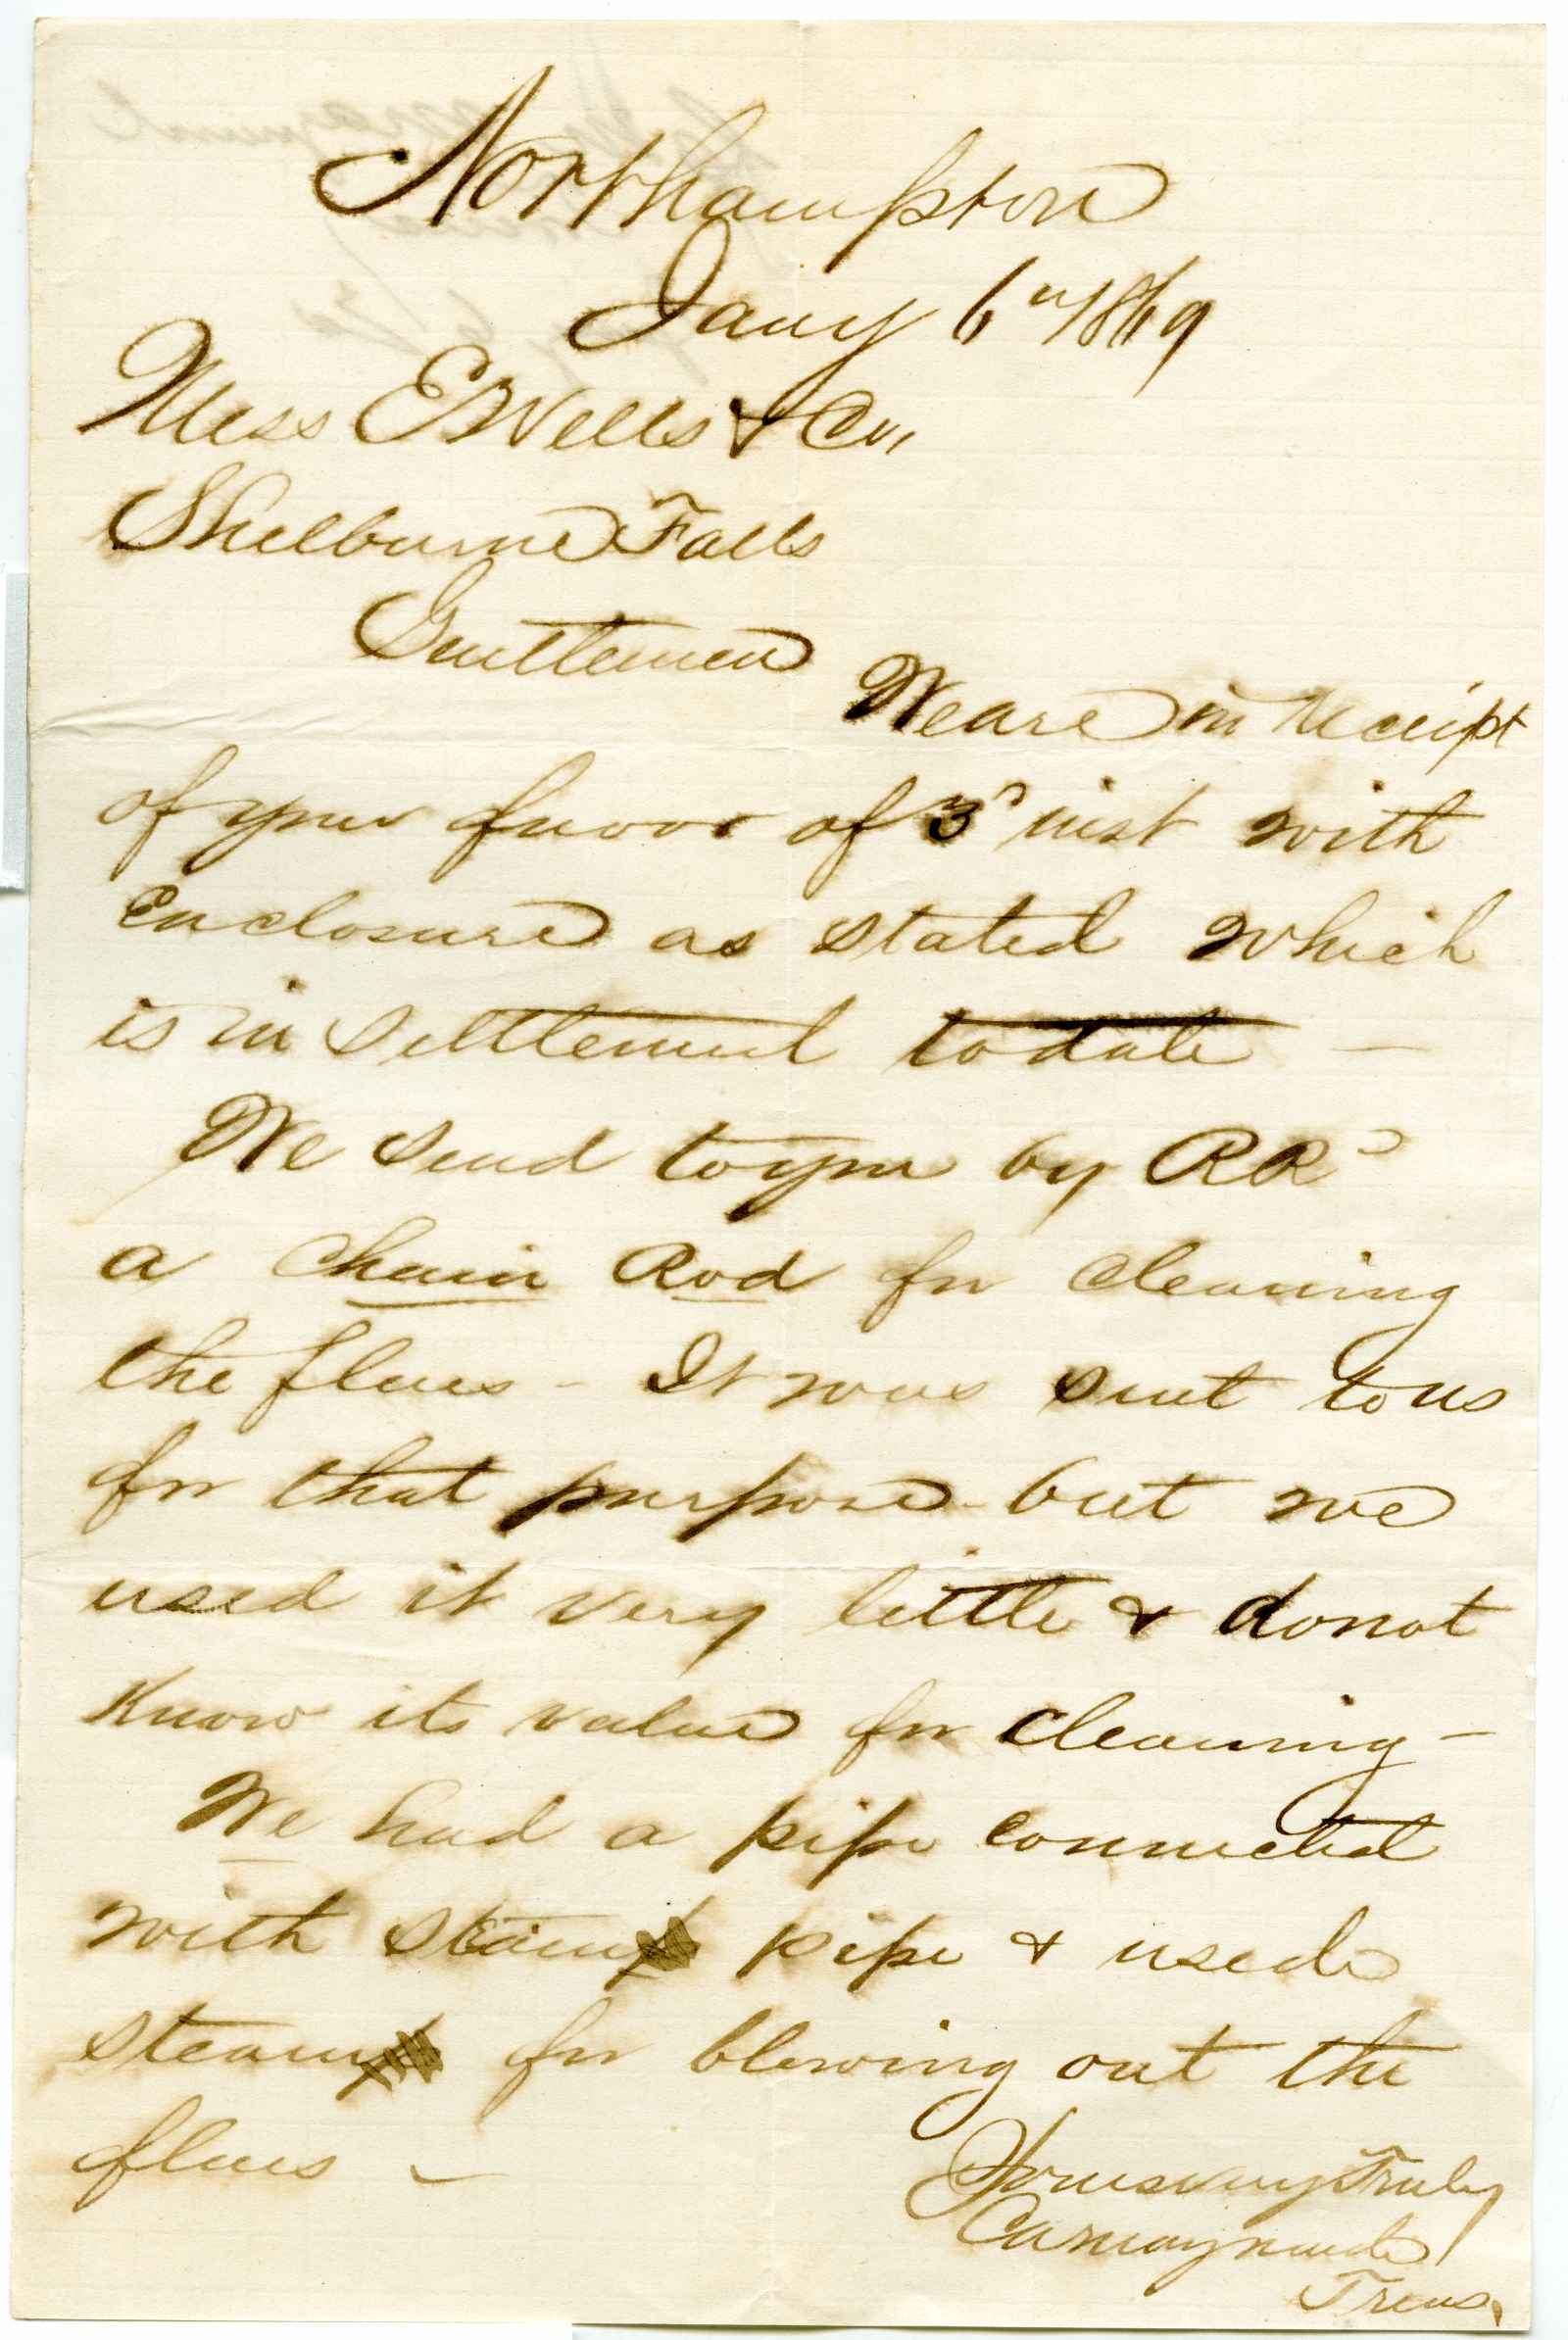 Northampton
Jany 6" 1869
Mess E Wells & Co,
Shelburne Falls
Gentlemen
We are in receipt
of your favor of 3" inst with
Enclosure as stated which
is in settlement to date —
We send to you by RRd
a chain Rod for cleaning
the flues - It was sent to us
for that purpose - but we
used it very little & do not
Know its value for cleaning -
We had a pipe connected
with steam pipe & used
steam for blowing out the
flues -
Yours very Truly
Ca Maynard
Treas,